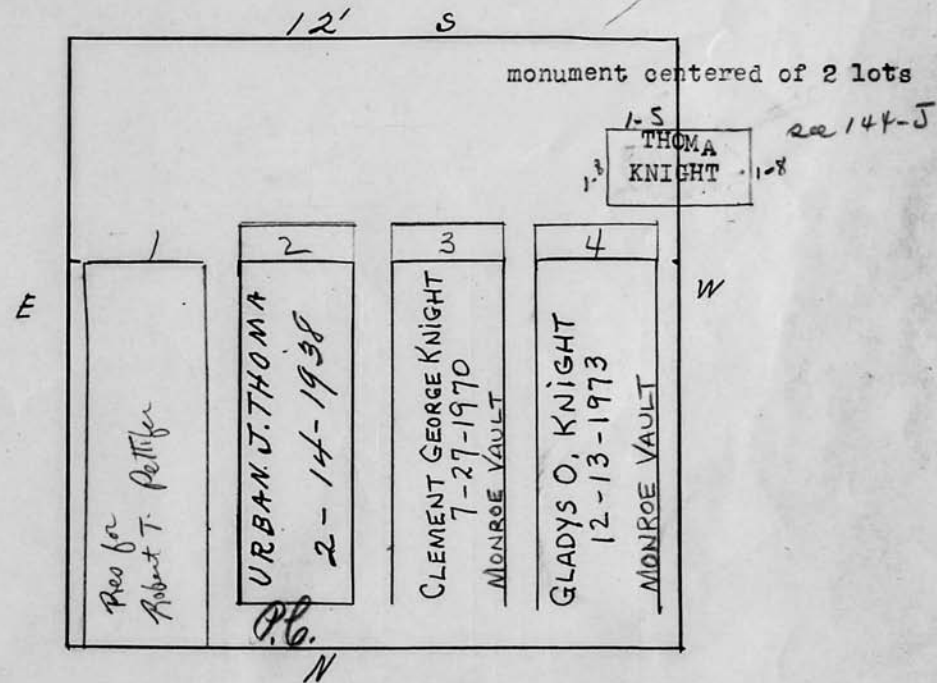 12' S
monument centered of 2 lots
see 144-J
1-5
THOMA
KNIGHT
1-8
1-8
E
W
1
Res for
Robert T. Pettifer
2
URBAN. J. THOMA
2-14-1938
P.C.
3
CLEMENT GEORGE KNIGHT
7-27-1970
MONROE VAULT
4
GLADYS O, KNIGHT
12-13-1973
MONROE VAULT
N